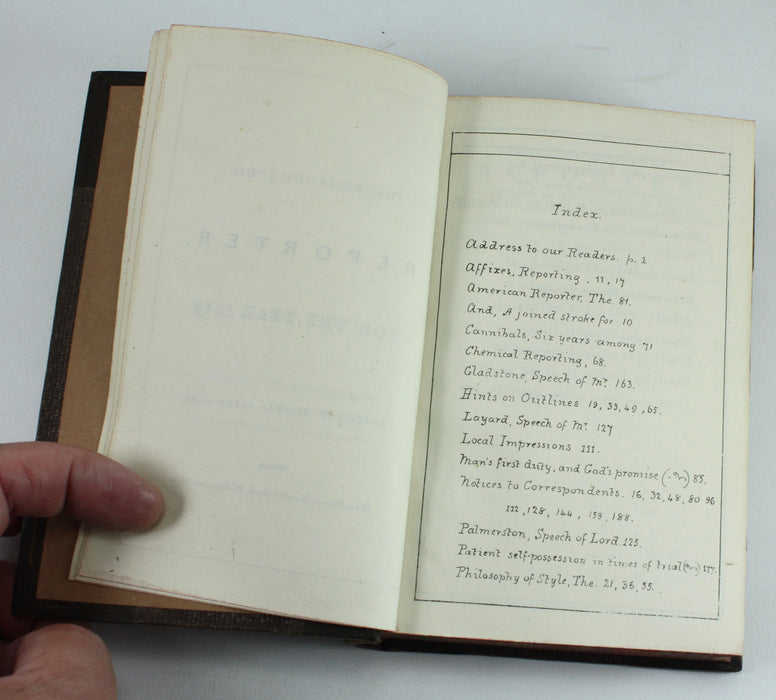 Index.
Address to our Readers. p. 1
Affixes, Reporting, 11, 17
American Reporter, The. 81.
And, A joined stroke for 10
Cannibals, Six years among 71
Chemical Reporting, 68.
Gladstone, Speech of Mr. 163.
Hints on Outlines 19, 33, 49, 65.
Layard, Speech of Mr. 127
Local Impressions 111.
Man's first duty, and God's promise 85.
Notices to Correspondents. 16, 32, 48, 80 96
112, 128, 144, 159, 188.
Palmerston, Speech of Lord. 125.
Patient self-possession in times of trial 177.
Philosophy of Style, The. 21, 36, 55.